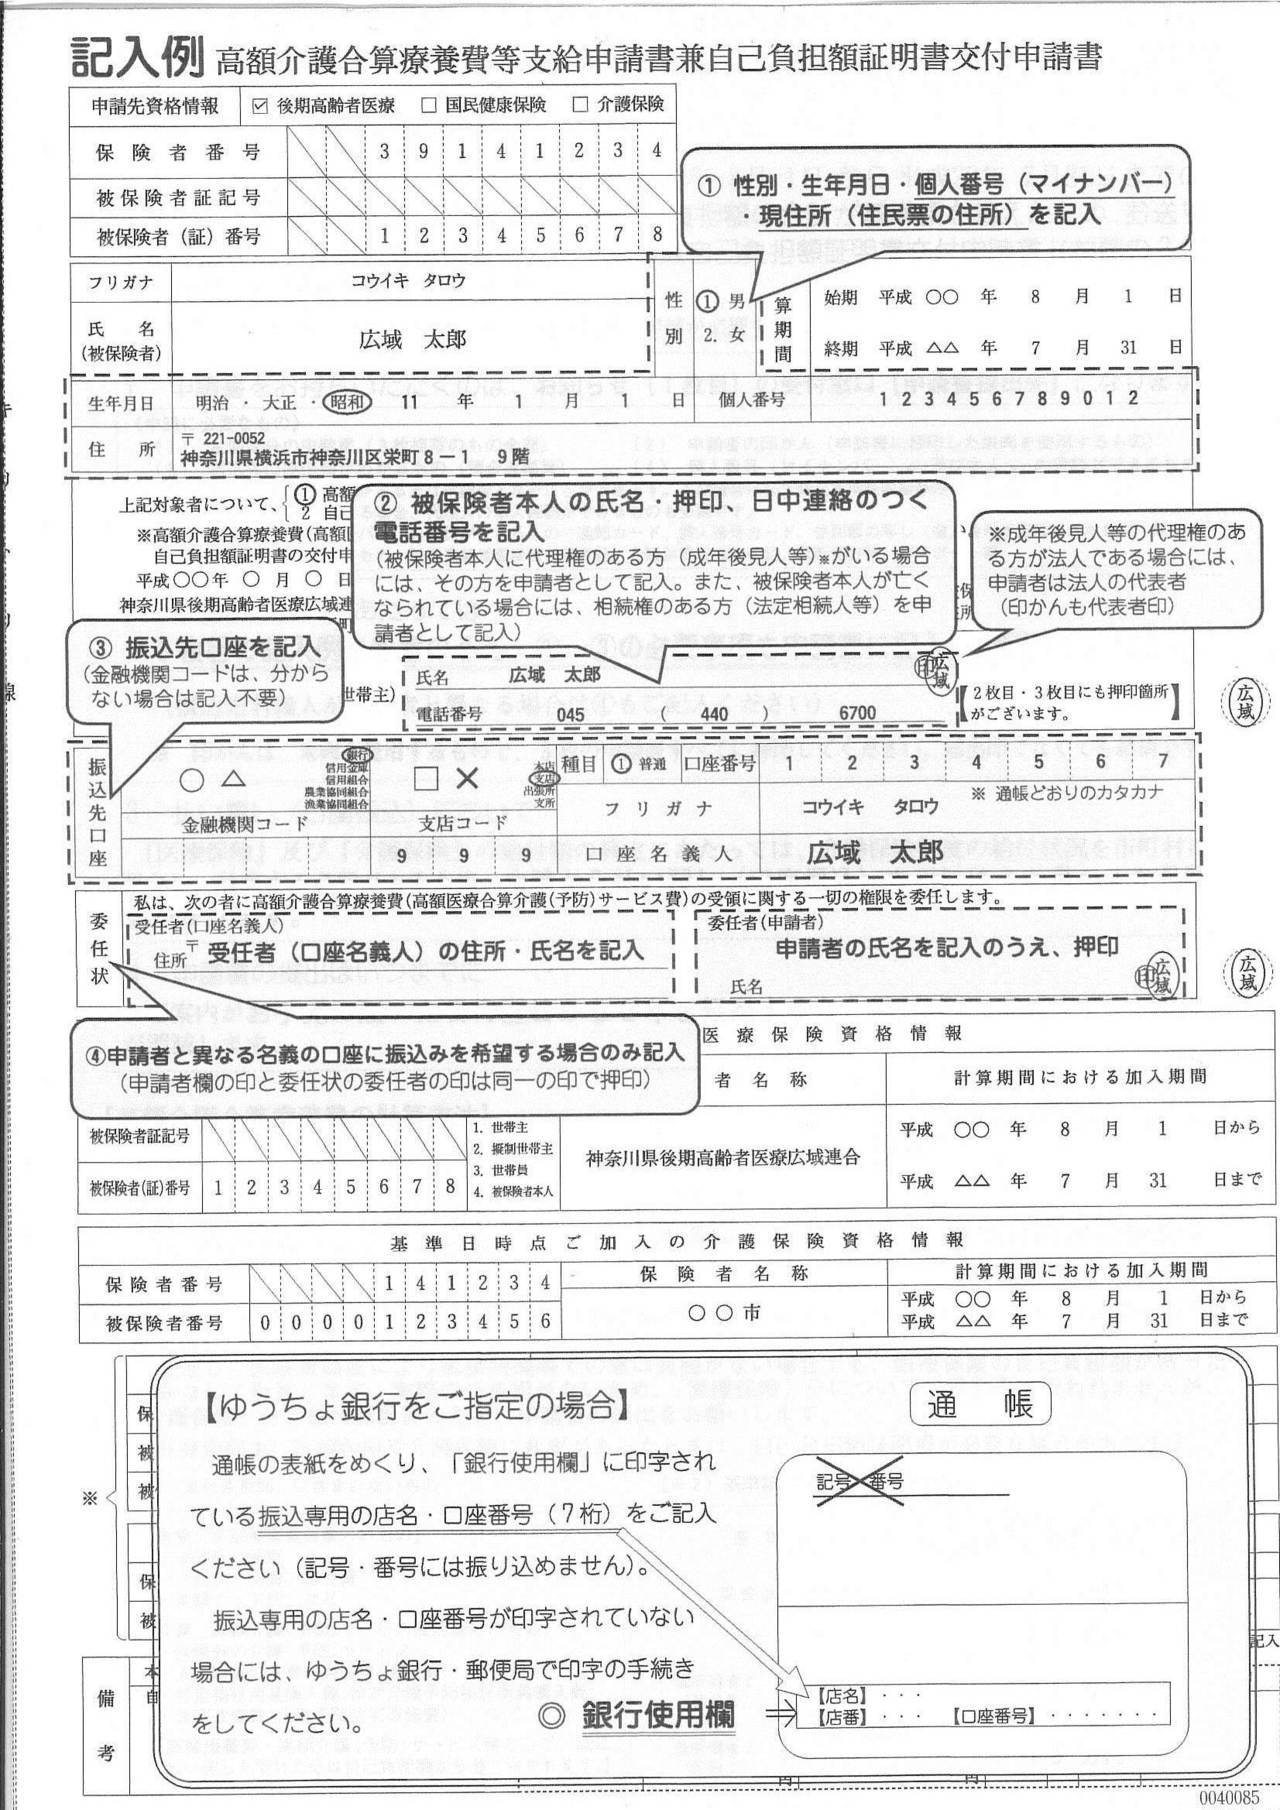 記入例 高額介護合算療養費等支給申請書兼自己負担額証明書交付申請書
申請先資格情報 ☑ 後期高齢者医療 □ 国民健康保険 □ 介護保険
保険者番号 3 9 1 4 1 2 3 4
被保険者証記号
被保険者（証）番号 1 2 3 4 5 6 7 8
① 性別・生年月日・個人番号（マイナンバー）
・現住所（住民票の住所）を記入
フリガナ コウイキ タロウ
氏名
(被保険者) 広域 太郎
性別 ① 男
2. 女
算期間 始期 平成 ○○ 年 8 月 1 日
終期 平成 △△ 年 7 月 31 日
生年月日 明治・大正・昭和 11 年 1 月 1 日 個人番号 1 2 3 4 5 6 7 8 9 0 1 2
住所 〒 221-0052
神奈川県横浜市神奈川区栄町８－１ ９階
上記対象者について、 ① 高額
2 自己
※高額介護合算療養費(高額
自己負担額証明書の交付申
平成○○年 ○ 月 ○ 日
神奈川県後期高齢者医療広域連
② 被保険者本人の氏名・押印、日中連絡のつく
電話番号を記入
(被保険者本人に代理権のある方（成年後見人等)※がいる場合
には、その方を申請者として記入。また、被保険者本人が亡く
なられている場合には、相続権のある方（法定相続人等）を申
請者として記入)
※成年後見人等の代理権のあ
る方が法人である場合には、
申請者は法人の代表者
（印かんも代表者印）
③ 振込先口座を記入
(金融機関コードは、分から
ない場合は記入不要)
世帯主)
氏名 広域 太郎 印 広域
電話番号 045 ( 440 ) 6700
【２枚目・３枚目にも押印箇所
がございます。】
広域
振込先口座
○ △ 銀行
信用金庫
信用組合
農業協同組合
漁業協同組合
□ × 本店
支店
出張所
支所
種目 ① 普通 口座番号 1 2 3 4 5 6 7
フリガナ コウイキ タロウ ※ 通帳どおりのカタカナ
金融機関コード 支店コード
9 9 9 9 9 9 9 口座名義人 広域 太郎
委任状
私は、次の者に高額介護合算療養費(高額医療合算介護(予防)サービス費)の受領に関する一切の権限を委任します。
受任者(口座名義人)
住所 〒 受任者（口座名義人）の住所・氏名を記入
委任者(申請者)
申請者の氏名を記入のうえ、押印
氏名 印 広域
広域
④申請者と異なる名義の口座に振込みを希望する場合のみ記入
（申請者欄の印と委任状の委任者の印は同一の印で押印）
医療保険資格情報
者名称 計算期間における加入期間
被保険者証記号
被保険者(証)番号 1 2 3 4 5 6 7 8
1. 世帯主
2. 擬制世帯主
3. 世帯員
4. 被保険者本人
神奈川県後期高齢者医療広域連合
平成 ○○ 年 8 月 1 日から
平成 △△ 年 7 月 31 日まで
基準日時点ご加入の介護保険資格情報
保険者番号 1 4 1 2 3 4 保険者名称 計算期間における加入期間
被保険者番号 0 0 0 0 1 2 3 4 5 6 ○○市
平成 ○○ 年 8 月 1 日から
平成 △△ 年 7 月 31 日まで
※
保
被
被
保
被
備考
本
自
【ゆうちょ銀行をご指定の場合】
通帳の表紙をめくり、「銀行使用欄」に印字され
ている振込専用の店名・口座番号（７桁）をご記入
ください（記号・番号には振り込めません)。
振込専用の店名・口座番号が印字されていない
場合には、ゆうちょ銀行・郵便局で印字の手続き
をしてください。
◎ 銀行使用欄
通 帳
記号 番号
【店名】・・・
【店番】・・・ 【口座番号】・・・・・・・
記入
円 円
0040085